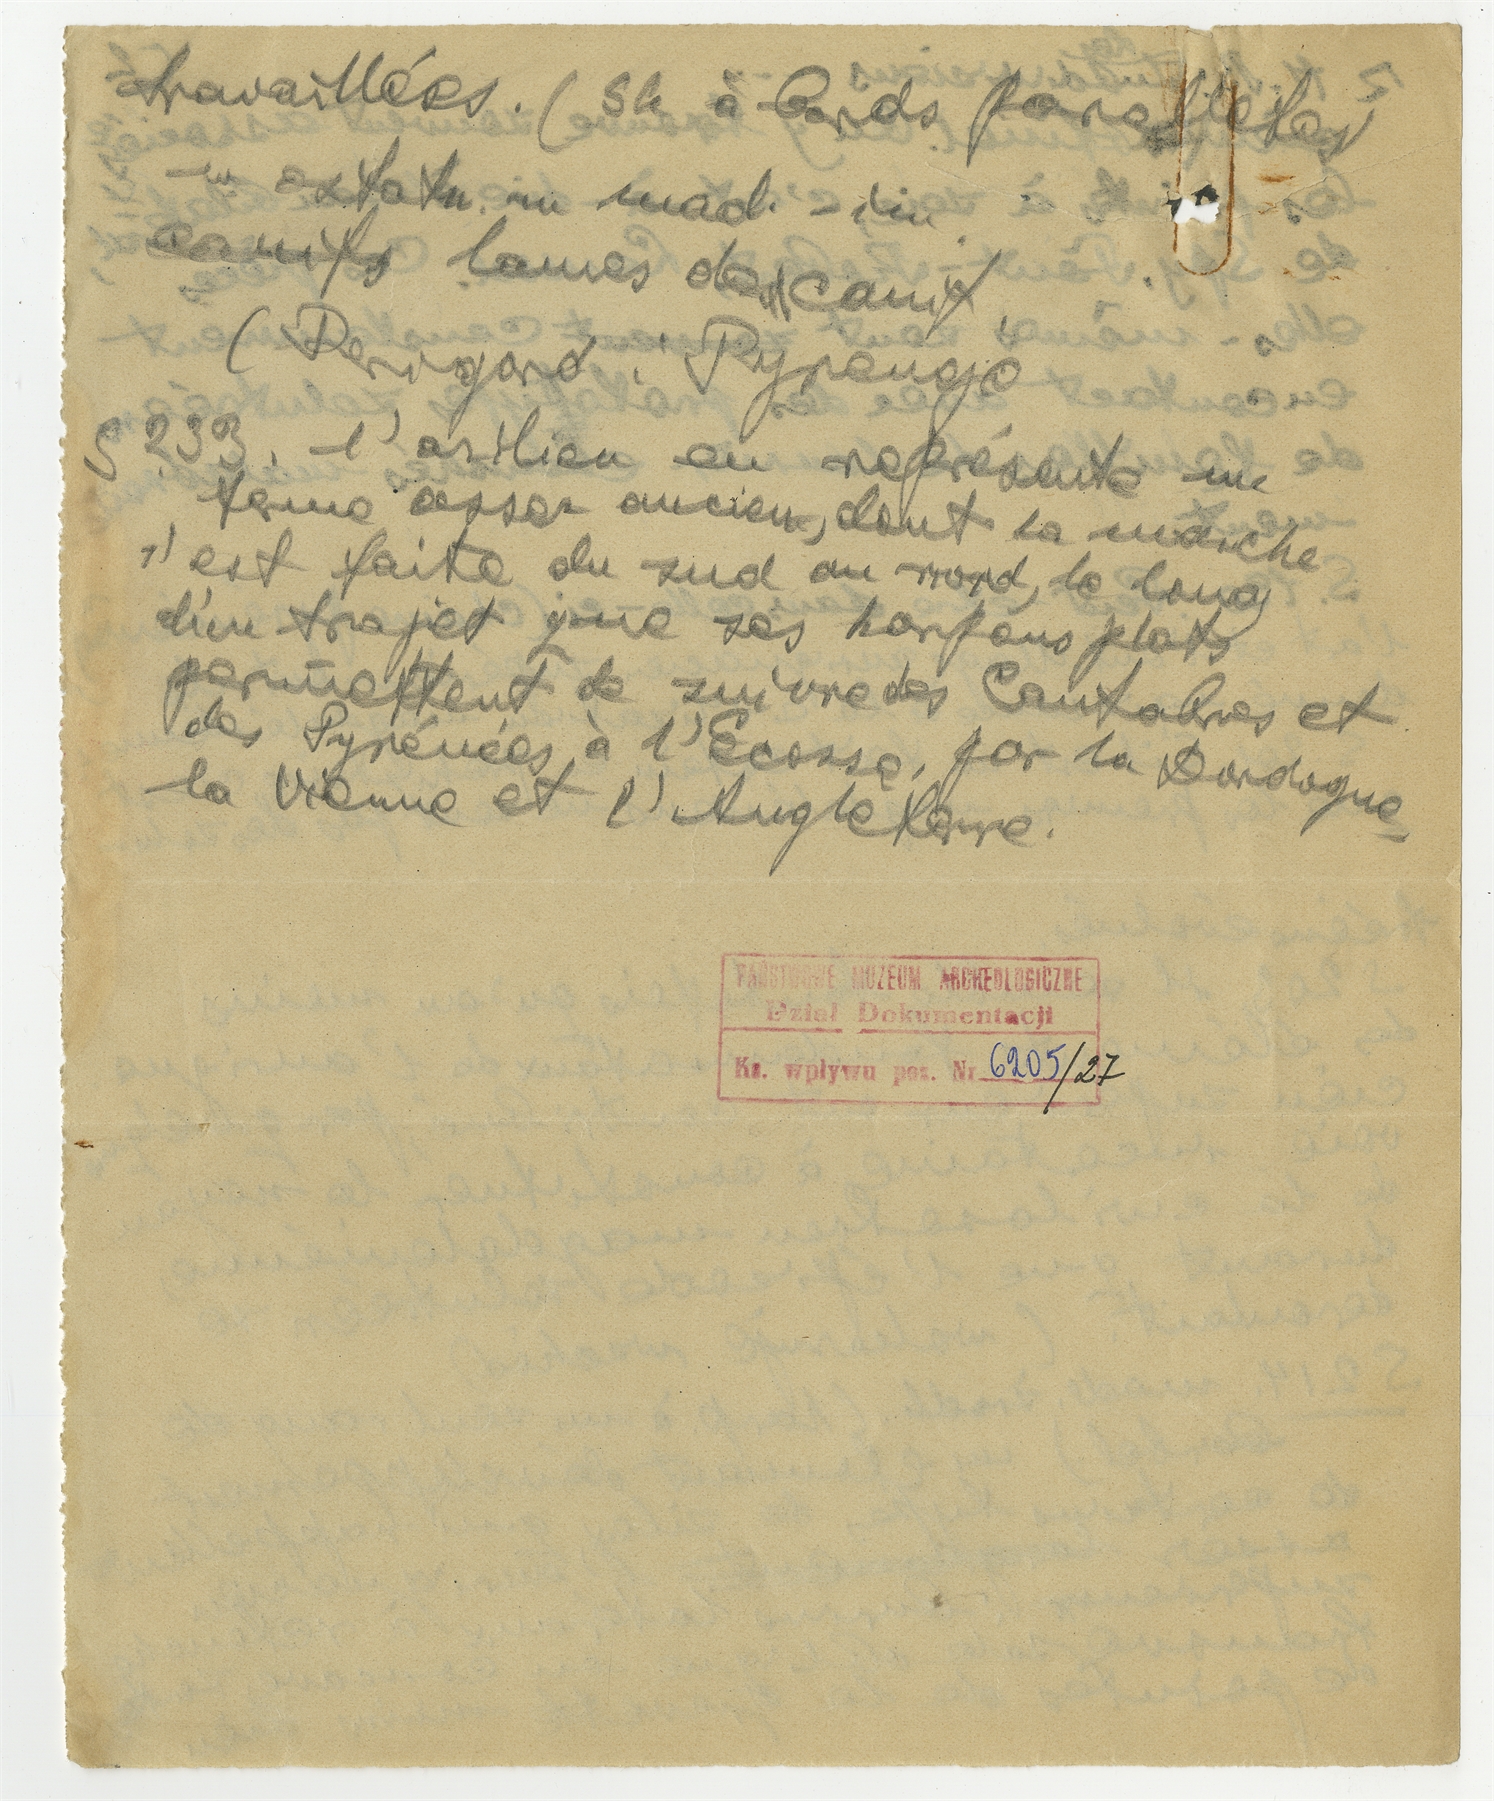 travaillées. (Sh à bords parallèles)
w ostatn. m mad. - im
canifs lames de canif
(Perigord i Pyreneje
S 233. l'asilien en représente un
terme assez ancien, dont la marche
s'est faite du sud au nord, le long
d'un trajet que ses harpons plats
permettent de suivre des Cantabres et
des Pyrénées à l'Ecosse, par la Dordogne
la Vienne et l'Angleterre.
PAŃSTWOWE MUZEUM ARCHEOLOGICZNE
Dział Dokumentacji
Ks. wpływu poz. Nr 6205/27